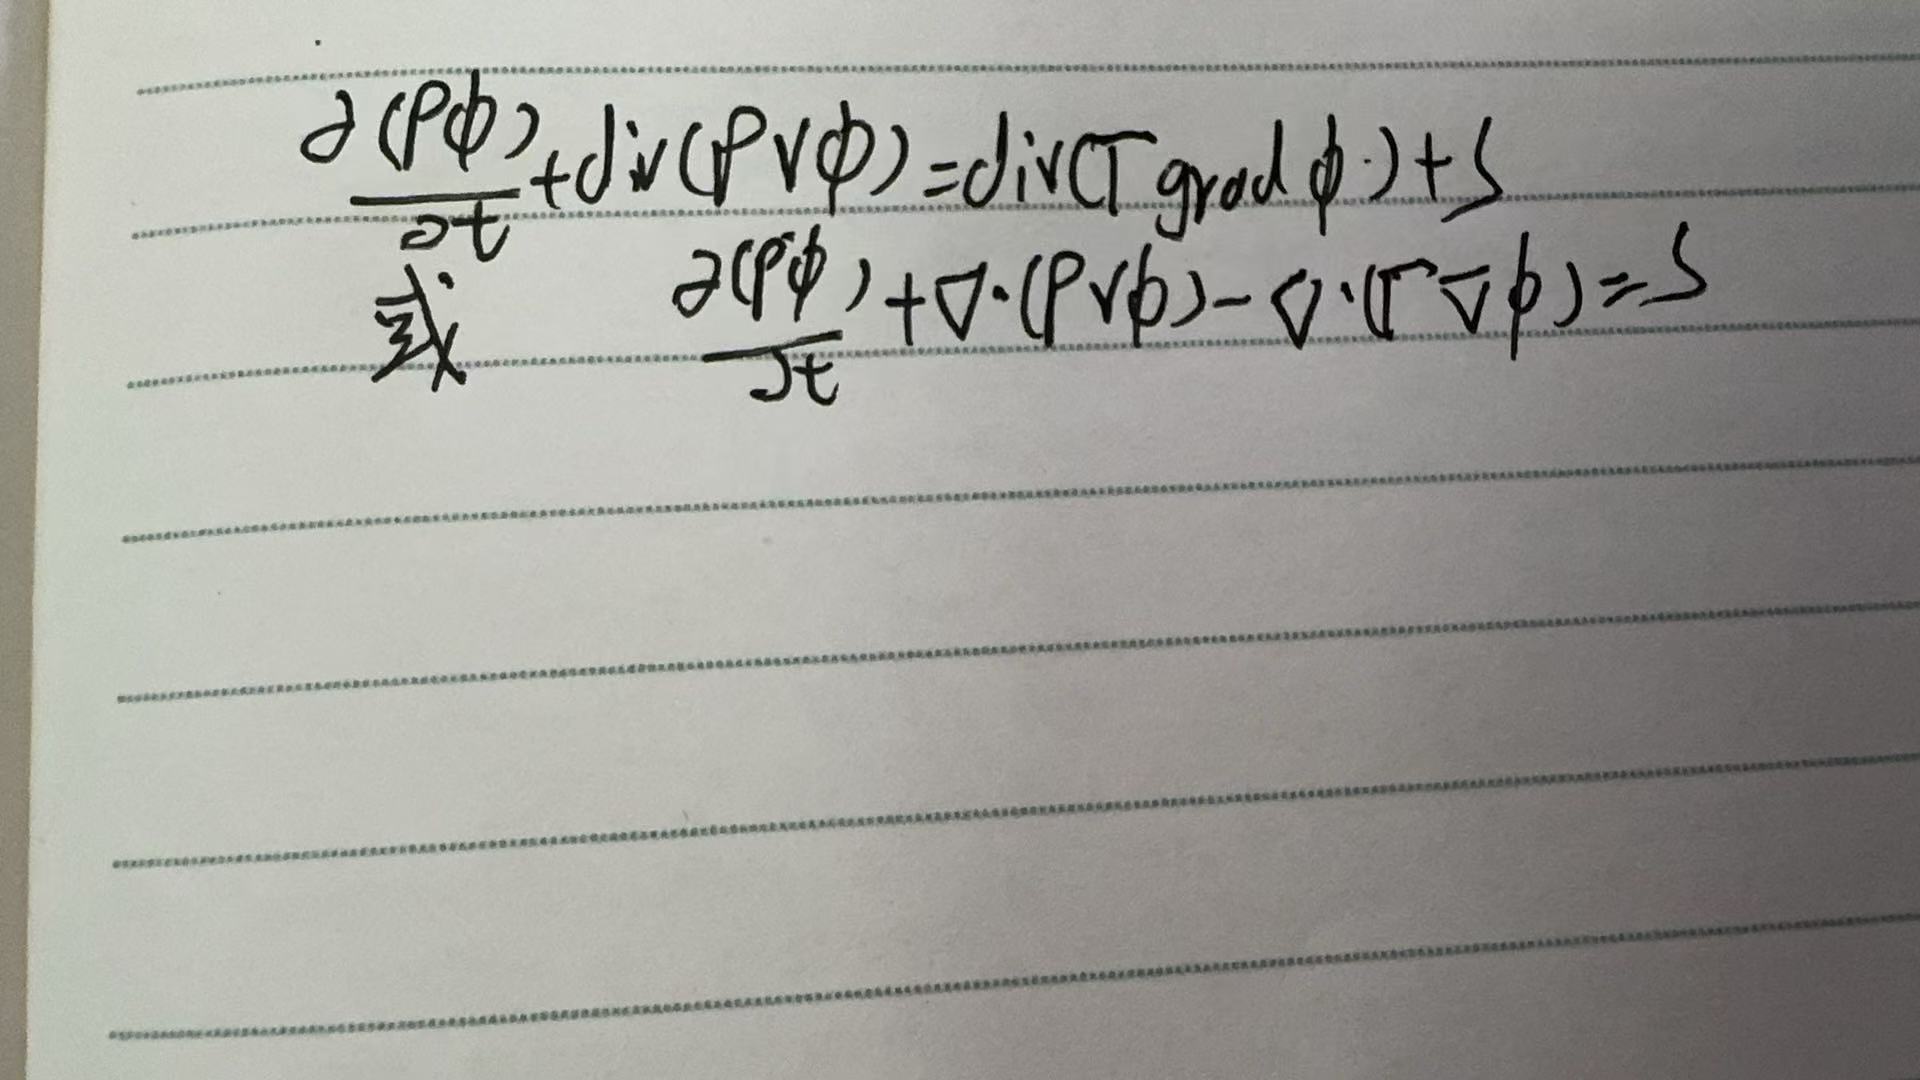 ∂(ρϕ)/∂t + div(ρVϕ) = div(Γ grad ϕ) + S
或 ∂(ρϕ)/∂t + ∇·(ρVϕ) - ∇·(Γ∇ϕ) = S